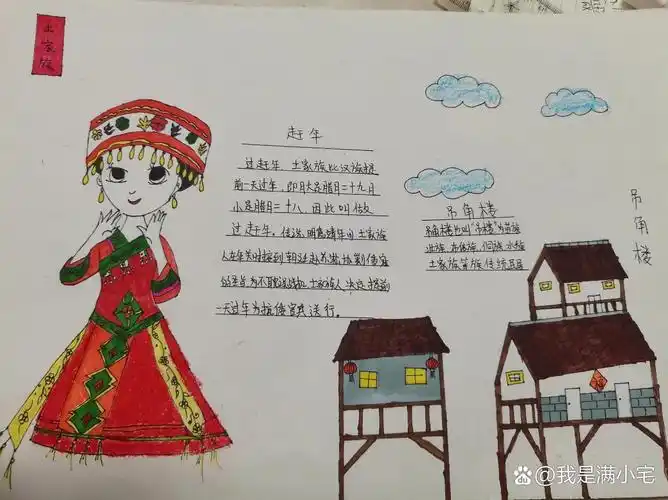 土家族
赶年
过赶年，土家族比汉族提
前一天过年，即月大是腊月二十九日
小是腊月二十八，因此叫做
过赶年，传说，明嘉靖年间土家族
人在年关时接到朝廷赴苏浙协剿倭寇
土家族人决定提前
一天过年为抗倭官兵送行。
吊角楼
吊角楼也叫“吊楼”为苗族
侗族 水族
土家族等族传统民居
吊角楼
福
@我是满小宅